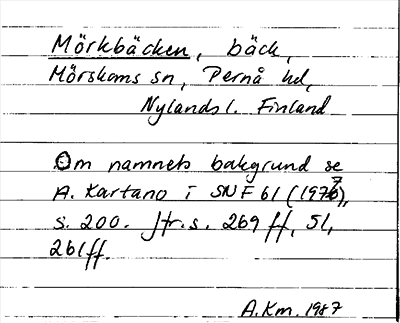 Mörkbäcken, bäck,
Mörskoms sn, Pernå hd,
Nylands l. Finland
Om namnets bakgrund se
A. Kartano i SNF 61 (1976),
s. 200. Jfr. s. 269 ff, 51,
261 ff.
A.Km. 1987